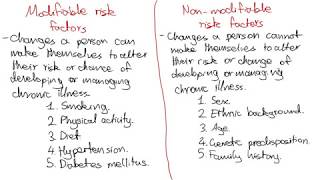 Modifiable risk
factors
- Changes a person can
make themselves to alter
their risk or chance of
developing or managing
chronic illness.
1. Smoking.
2. Physical activity.
3. Diet
4. Hypertension.
5. Diabetes mellitus.
Non-modifiable
risk factors
- Changes a person cannot
make themselves to alter
their risk or change of
developing or managing
chronic illness.
1. Sex
2. Ethnic background.
3. Age.
4. Genetic predisposition.
5. Family history.